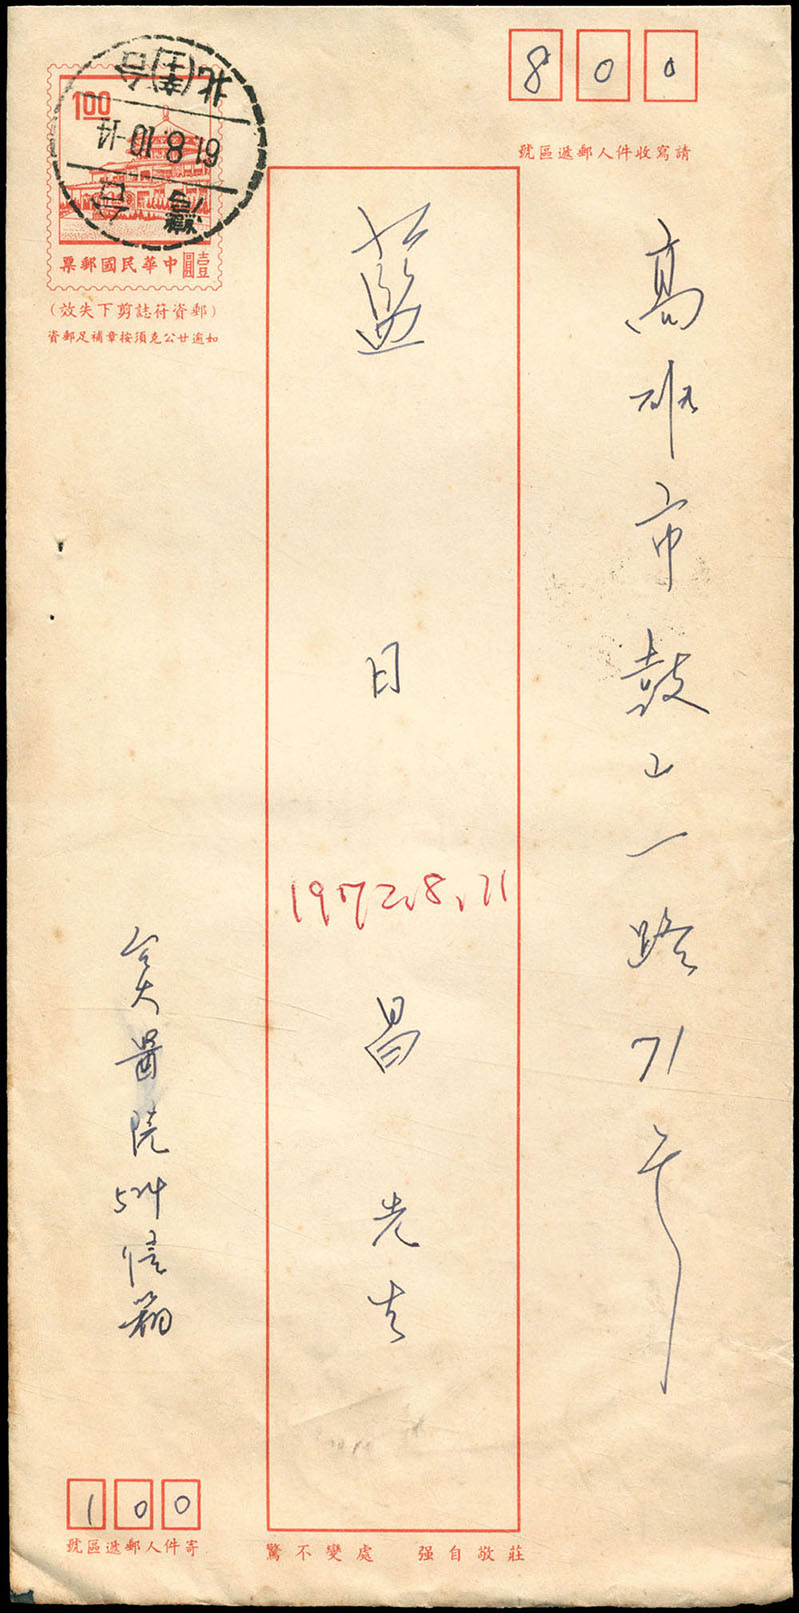 800
請寫收件人郵遞區號
1.00
台灣
61.8.10-14
壹圓中華民國郵票
(郵資符誌剪下失效)
如逾廿公克須按章補足郵資
高雄市鼓山一路71号
藍日昌先生
1972.8.21
台大醫院524信箱
100
寄件人郵遞區號
莊敬自强 處變不驚